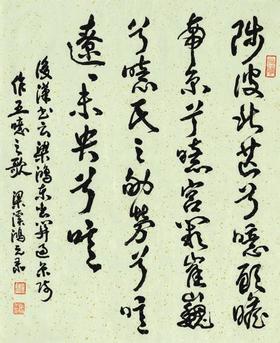 陟彼北芒兮噫顧瞻
帝京兮噫宮闕崔巍
兮噫民之劬勞兮噫
遼々未央兮噫
後漢書云梁鴻東出關過京師
作五噫之歌 梁溪